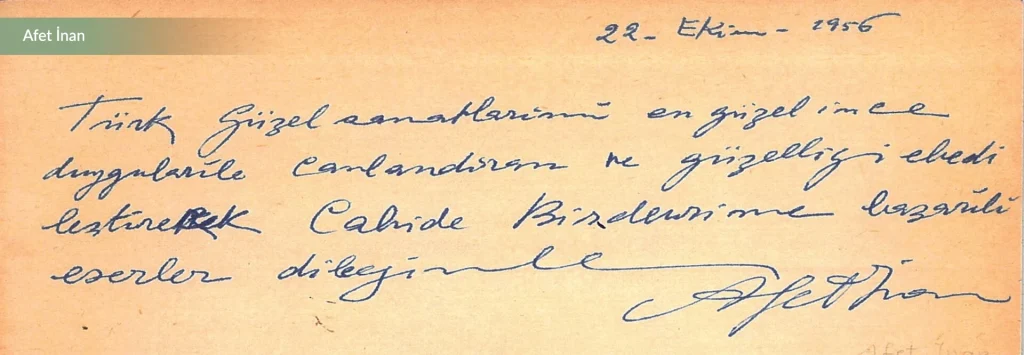 Afet İnan
22 - Ekim - 1956
Türk Güzel sanatlarını en güzel ince
duygularile canlandıran ve güzelliği ebedi
leştirerek Cahide
eserler dileğimle
Afet İnan